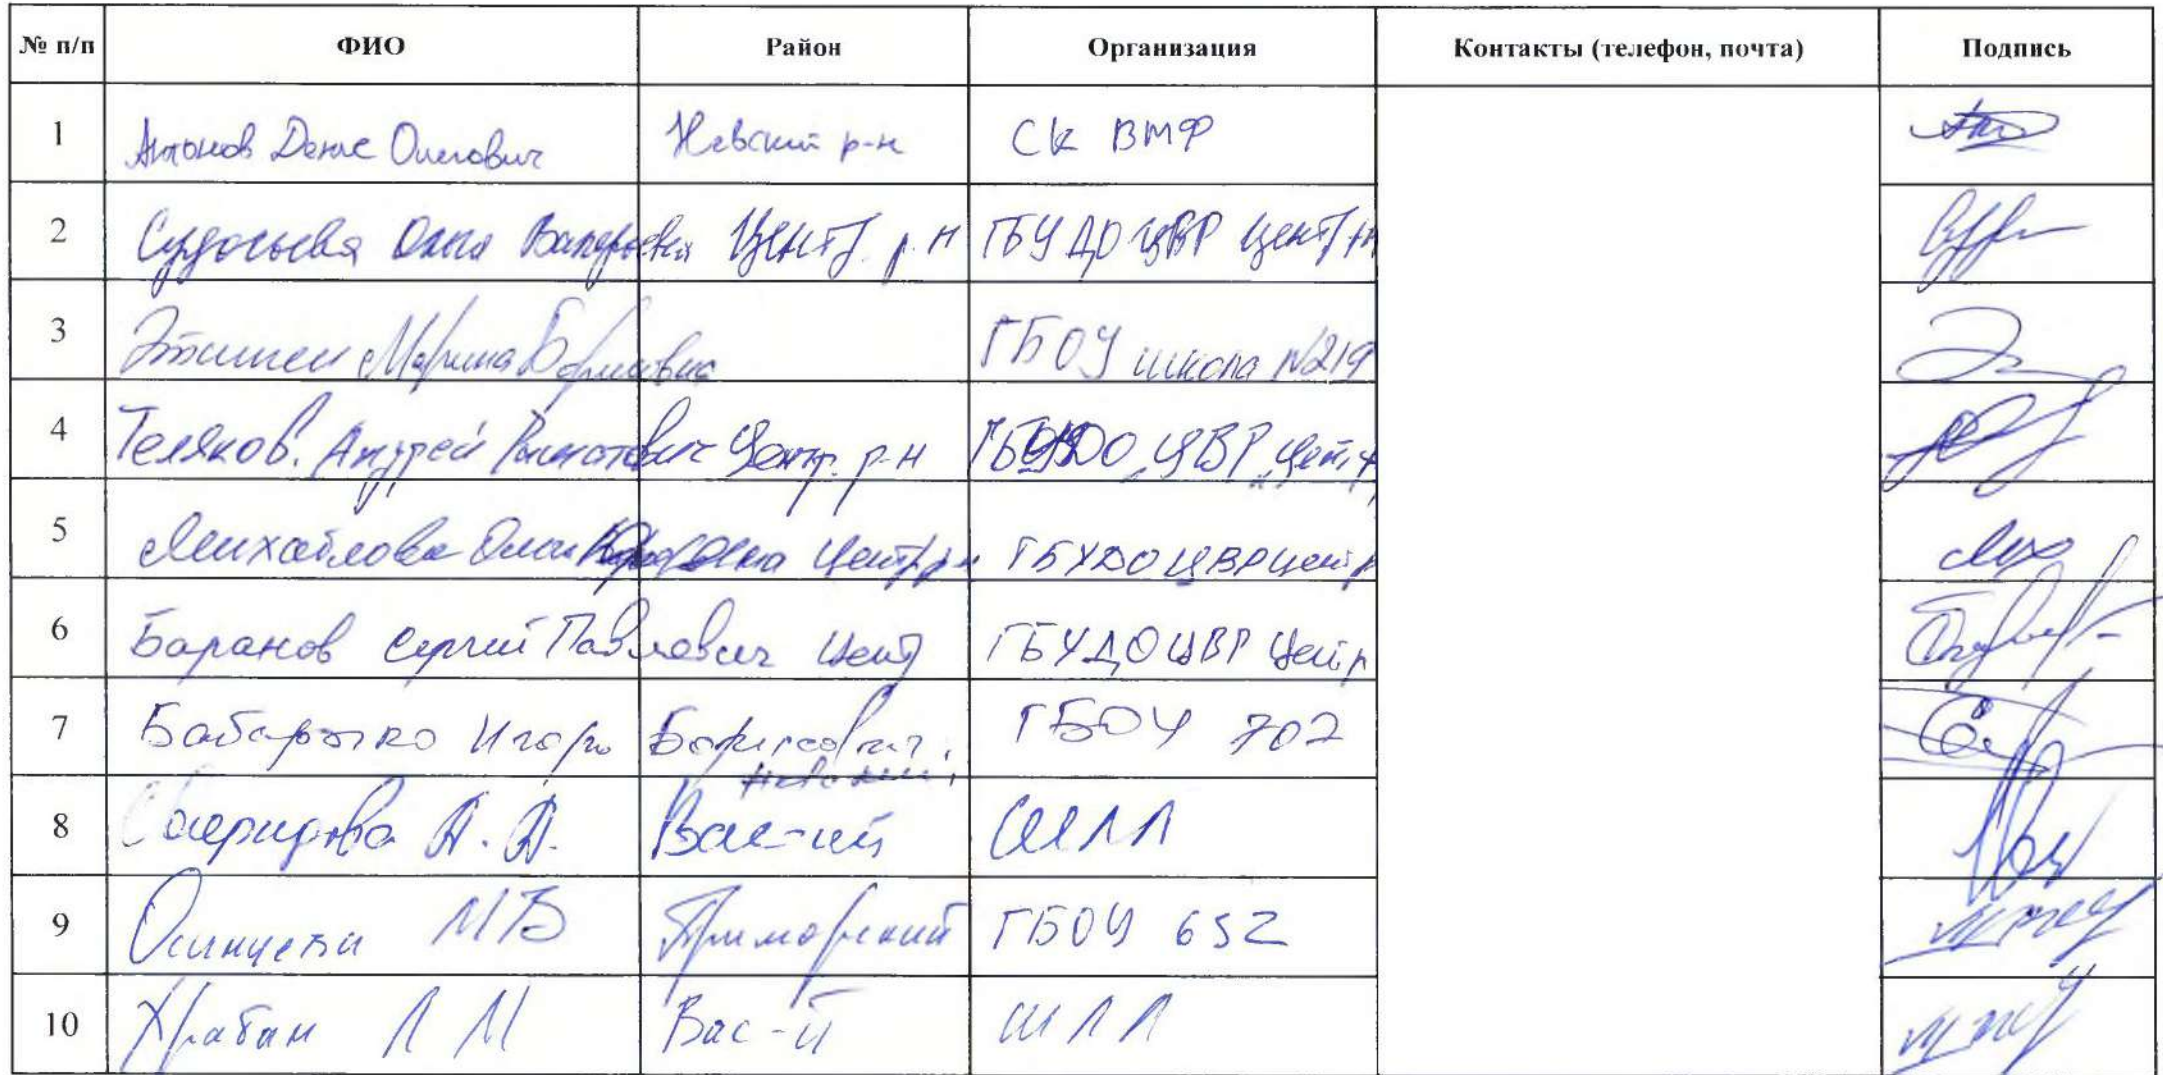 № п/п ФИО Район Организация Контакты (телефон, почта) Подпись
1 Антонов Денис Олегович Невский р-н СК ВМФ
2 Ольга Валерьевна Центр. р-н ГБУ ДО ЦВР Центр р-н
3 Марина Борисовна ГБОУ школа №219
4 Теляков. Андрей Ринатович Центр. р-н ГБУДО „ЦВР„ Центр
5 Михайлова Ольга Центр р-н ГБУДО ЦВР Центр
6 Баранов Сергей Павлович Центр ГБУДО ЦВР Центр
7 Бабарыко Игорь Борисович. ГБОУ 702
Невский
8 Свиридова А. А. Вас-ий ШЛЛ
9 МБ Приморский ГБОУ 652
10 Храбан Л М Вас-й ШЛЛ